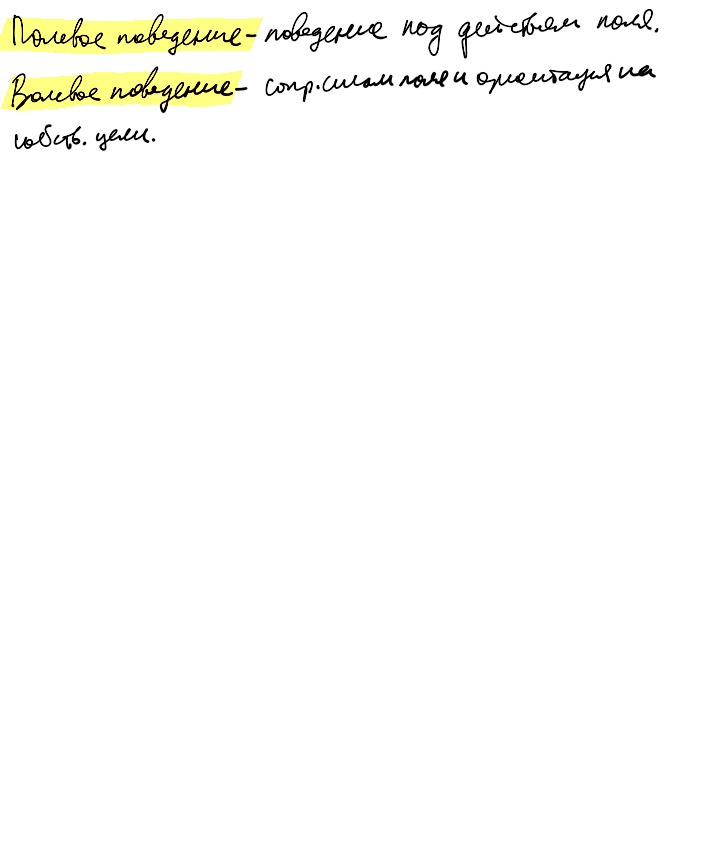 Полевое поведение - поведение под действием поля.
Волевое поведение - сопр. силам поля и ориентация на
собств. цели.